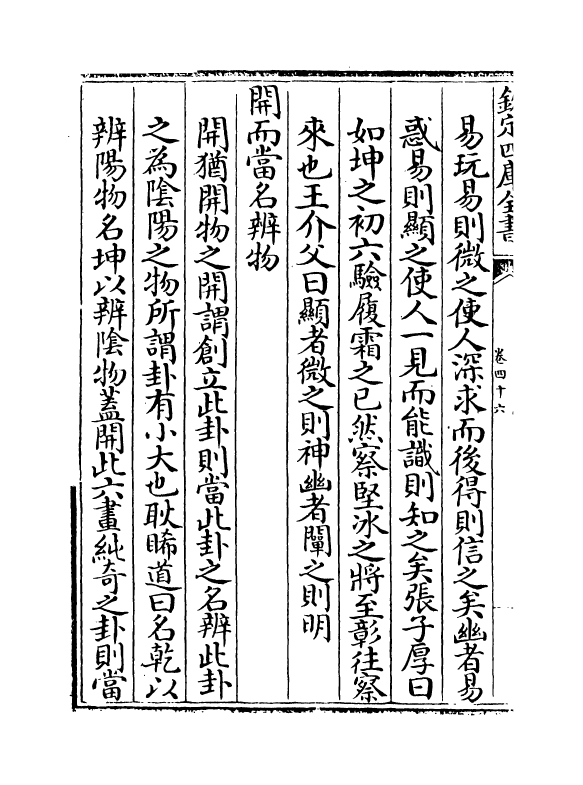 欽定四庫全書
卷四十六
易玩易則微之使人深求而後得則信之矣幽者易
惑易則顯之使人一見而能識則知之矣張子厚曰
如坤之初六驗履霜之已然察堅冰之將至彰往察
來也王介父曰顯者微之則神幽者闡之則明
開而當名辨物
開猶開物之開謂創立此卦則當此卦之名辨此卦
之為陰陽之物所謂卦有小大也耿晞道曰名乾以
辨陽物名坤以辨陰物蓋開此六畫純奇之卦則當